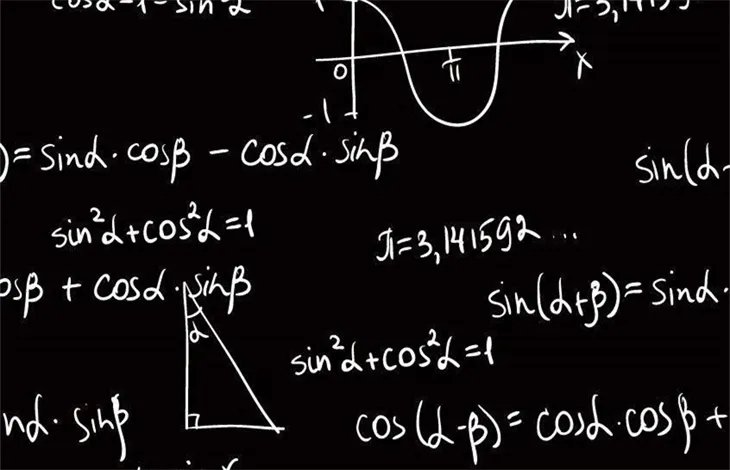 cosα=1-sin²α
1
π=3,14159
0
π
x
-1
)=sinα·cosβ - cosα·sinβ
sin(α-
sin²α+cos²α=1
π=3,141592...
osβ + cosα·sinβ
sin(α+β)=sinα·
α
sin²α+cos²α=1
nα·sinβ
cos(α-β)=cosα·cosβ+